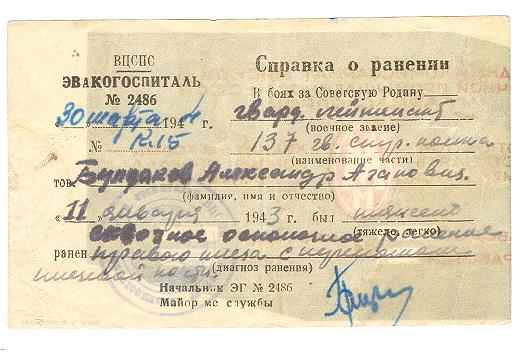 ВЦСПС
ЭВАКОГОСПИТАЛЬ
№ 2486
30 марта 1944 г.
№ К.15
Справка о ранении
В боях за Советскую Родину
гвард. лейтенант
(военное звание)
137 гв. стр. полка
(наименование части)
тов. Булдаков Александр Агапович
(фамилия, имя и отчество)
„11„ января 1943 г. был тяжело
(тяжело, легко)
сквозное осколочное ранение
ранен правого плеча с
плечевой кости.
(диагноз ранения)
Начальник ЭГ № 2486
Майор ме службы